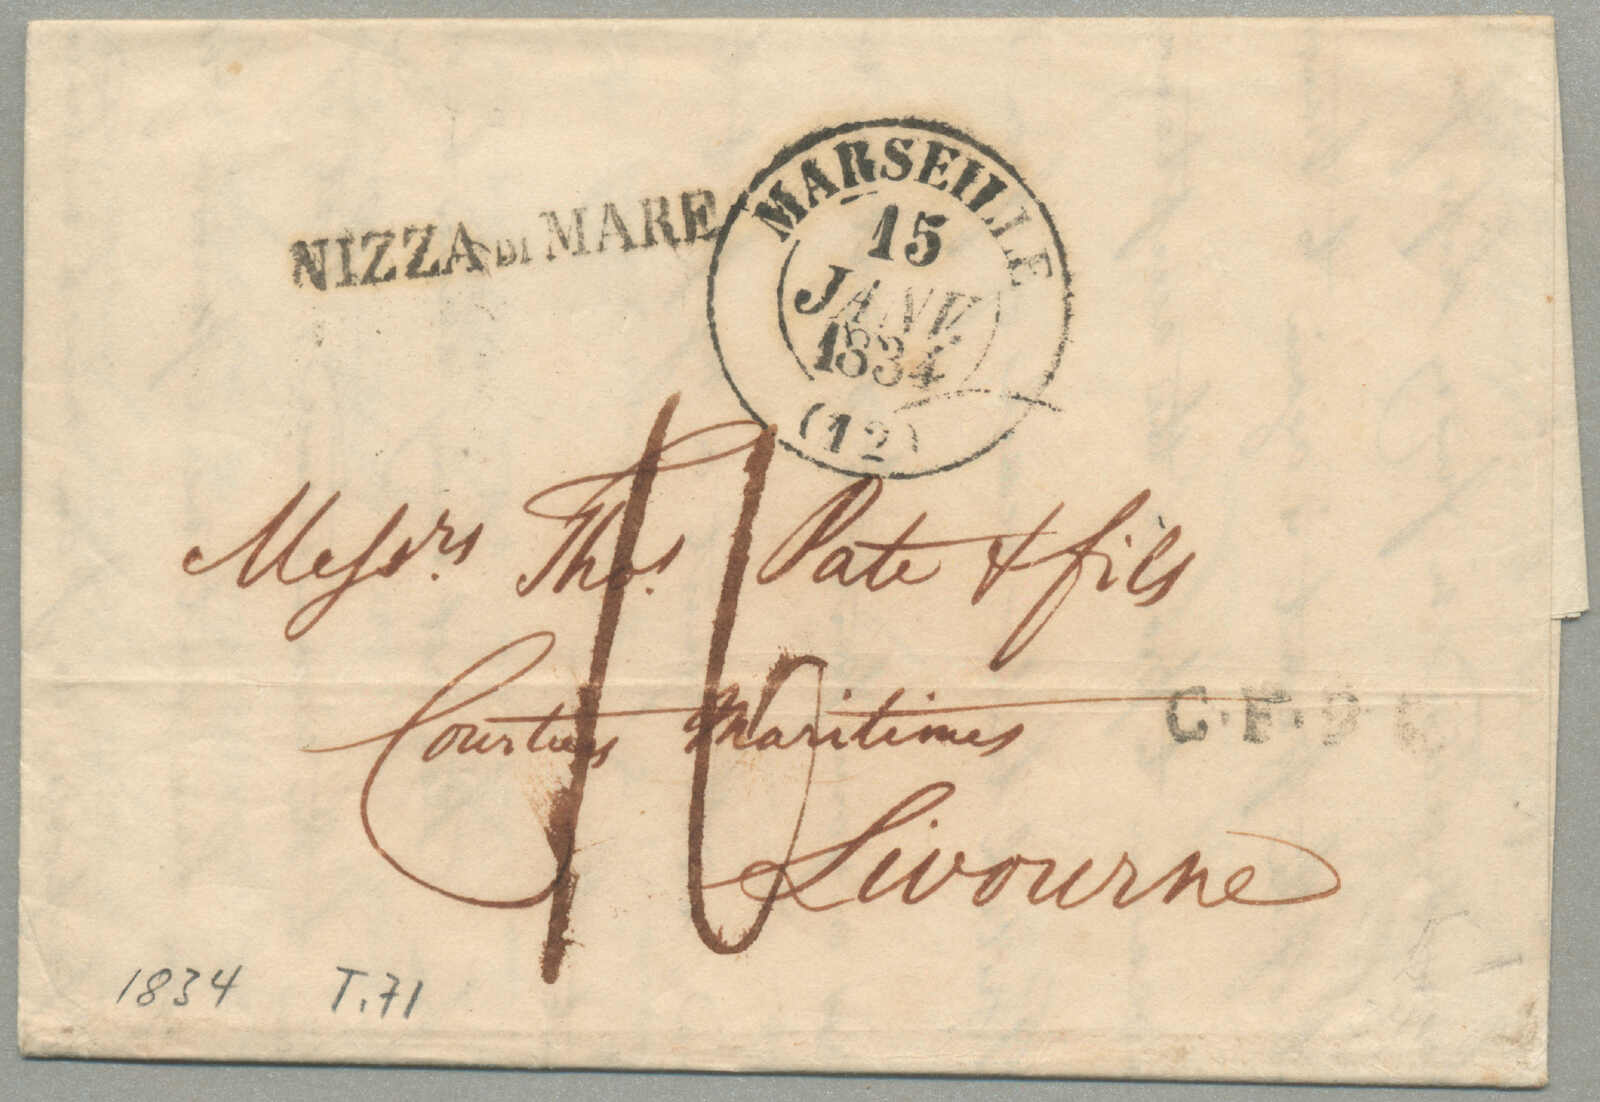 NIZZA DI MARE
MARSEILLE
15
JANV.
1834
(12)
16
Messrs. Thos. Pate & fils
Courtiers Maritimes
C.F.
Livourne
1834 T.71